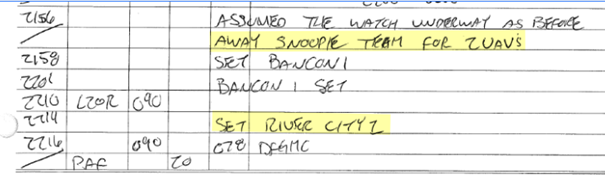 2156 ASSUMED THE WATCH UNDERWAY AS BEFORE
AWAY SNOOPIE TEAM FOR 2 UAV'S
2158 SET BANCON 1
2201 BANCON 1 SET
2210 L20R 090
2214 SET RIVER CITY 1
2216 090 078 DFGMC
RAF 20